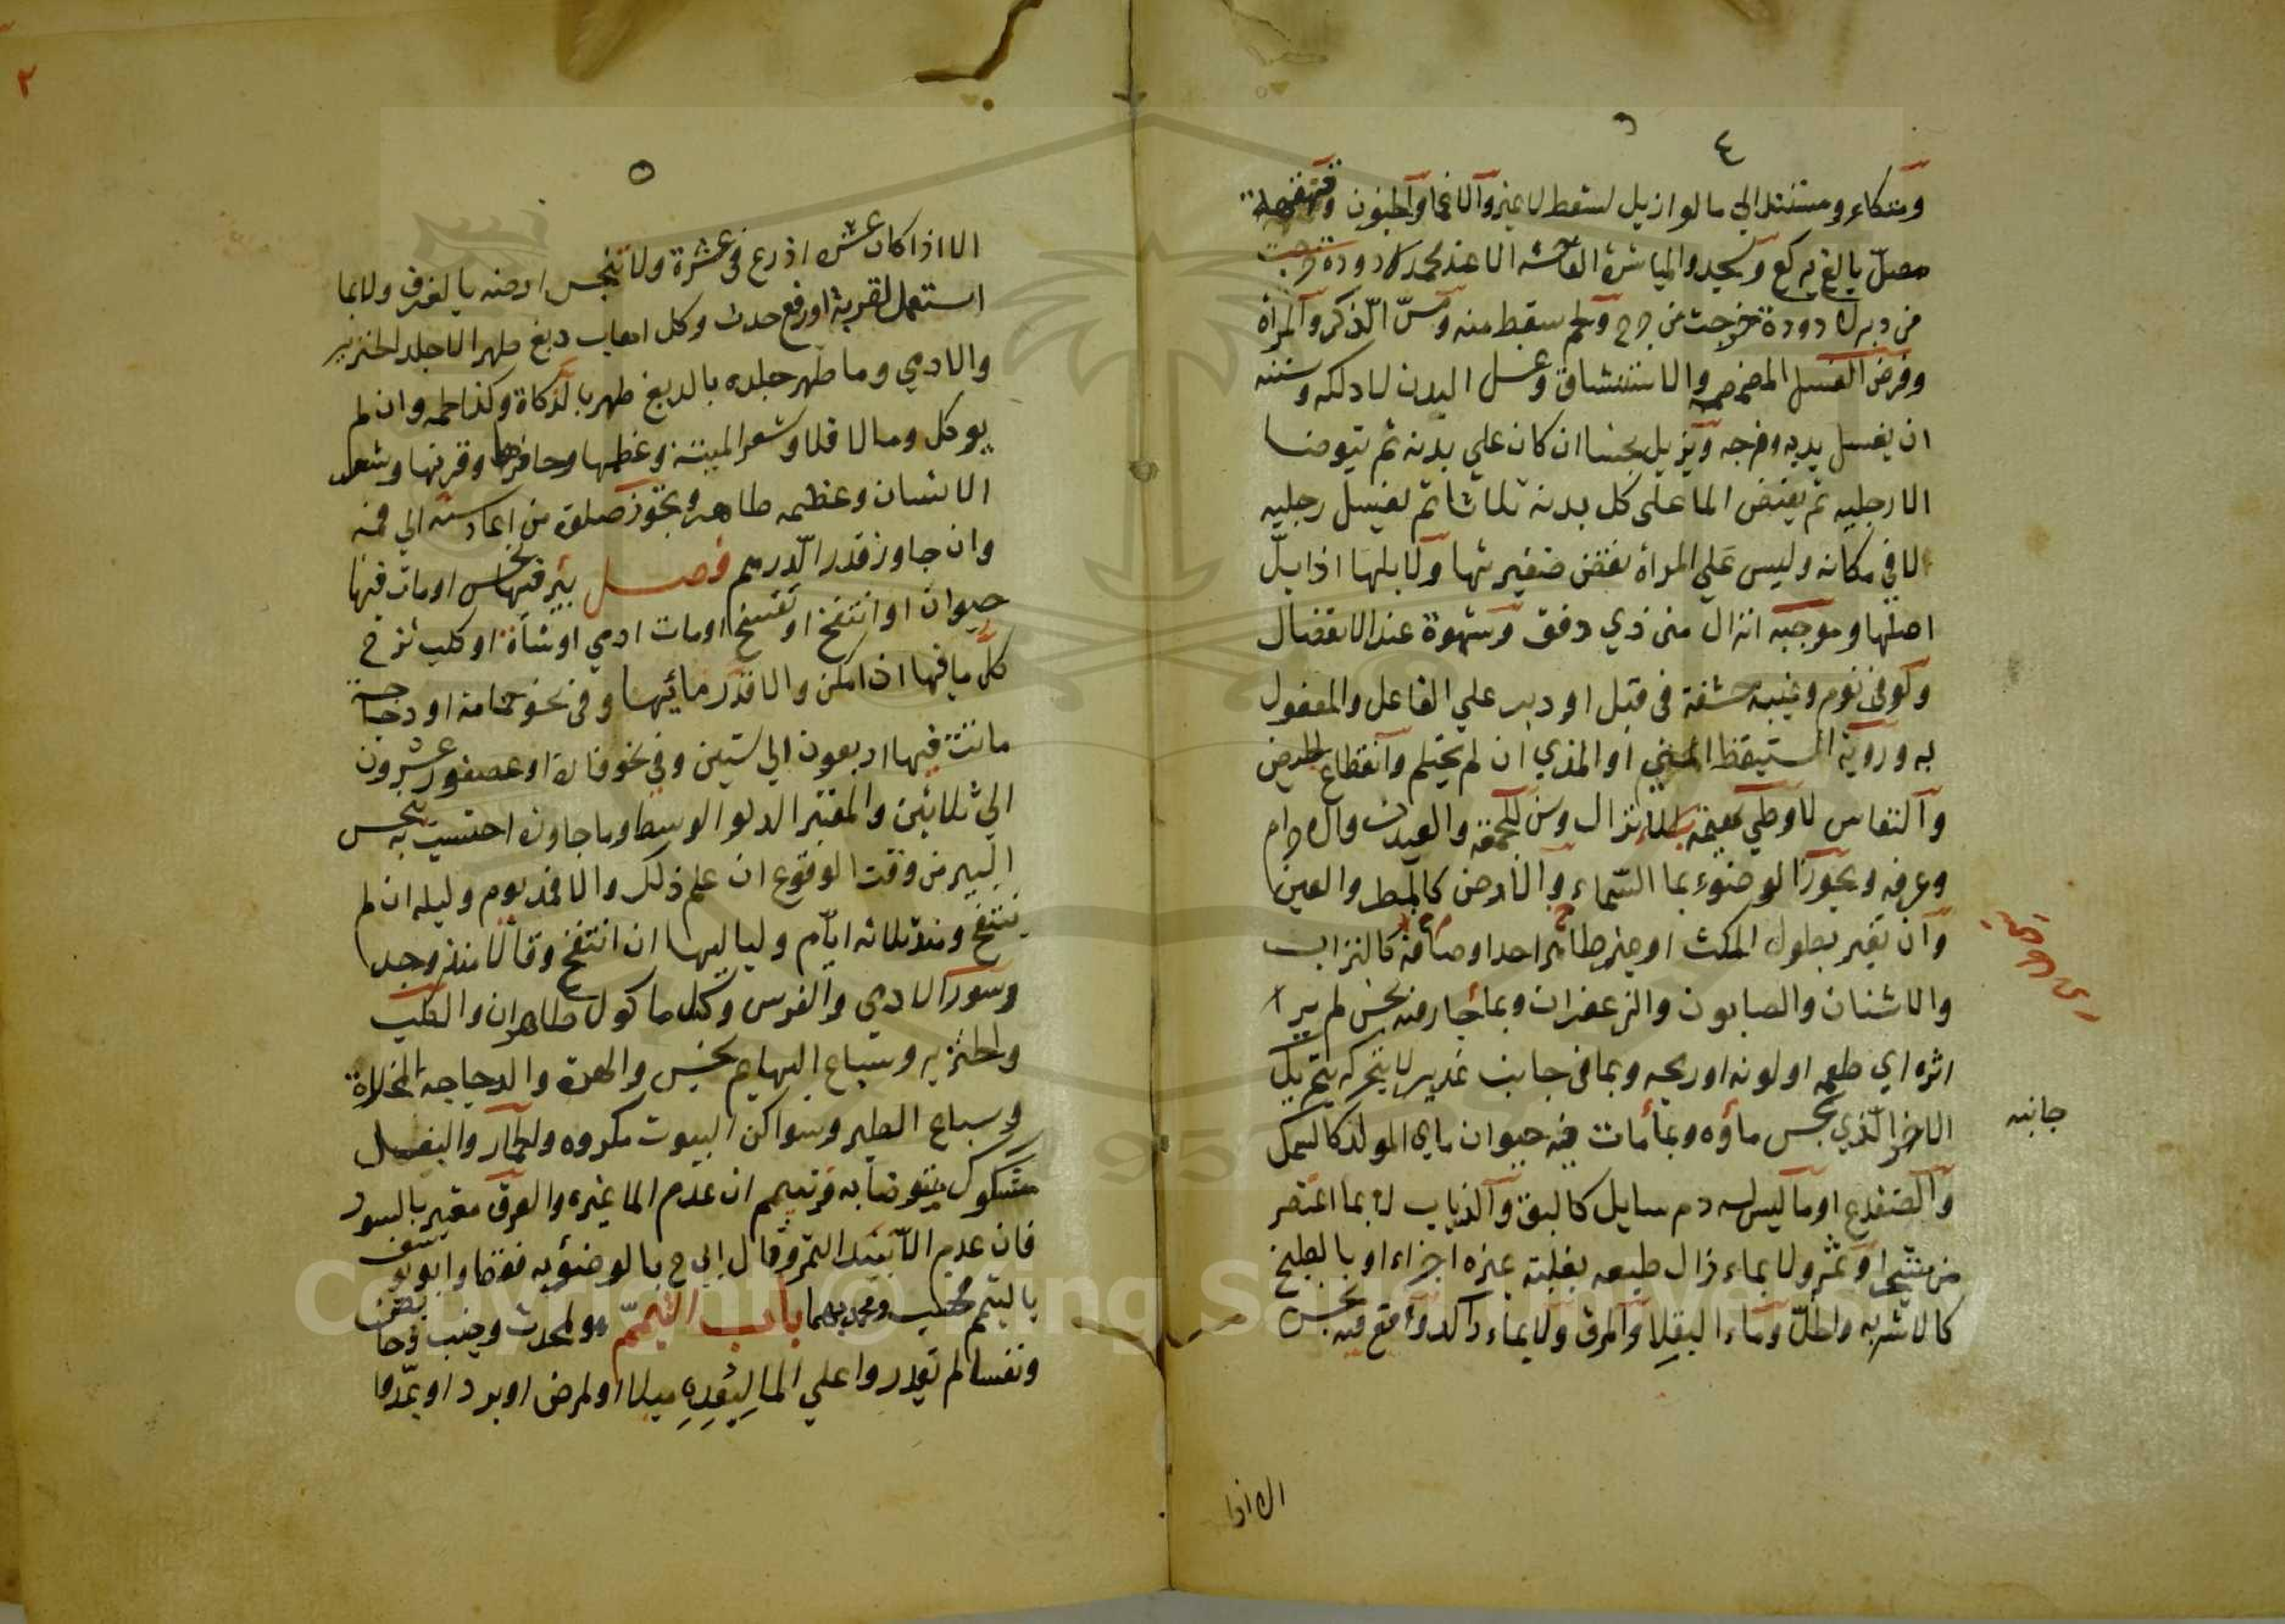 ٤
ومتكاء ومستند الي ما لو ازيل لسقط لا غير والاغما والجنون وقهقهة
مصلّ بالغ يركع ويسجد والمباشرة الفاحشة الا عند محمد لا دودة خرجت
من دبر لا دودة خرجت من جرح ولحم سقط منه ومسّ الذكر والمرأة
وفرض الغسل المضمضه والاستنشاق وغسل البدن لا دلكه وسننه
ان يغسل يديه وفرجه ويزيل نجسا ان كان علي بدنه ثم يتوضا
الا رجليه ثم يفيض الما على كل بدنه ثلاثا ثم يغسل رجليه
لا في مكانه وليس علي المرأة نقض ضفيرتها ولا بلها اذا ابتلّ
اصلها وموجبه انزال مني ذي دفق وشهوة عند الانفصال
ولو في نوم وغيبه حشفة في قبل او دبر علي الفاعل والمفعول
به وروية المستيقظ المني او المذي ان لم يحتلم وانقطاع الحيض
والنفاس لا وطي بهيمة بلا انزال وسن للجمعة والعيدين والاحرام
وعرفه ويجوز الوضوء بما السّماء والارض كالمطر والعين
وان تغير بطول المكث او غير طاهر احد اوصافه كالتراب
والاشنان والصابون والزعفران وبما جار فيه نجس لم ير
اثره اي طعمه او لونه او ريحه وبما في جانب غدير لا يتحركه بتحريك
جانبه
الاخر الّذي نجس مأؤه وبما مات فيه حيوان ماي المولد كالسمك
والضفدع او ما ليس له دم سايل كالبق والذباب لا بما اعتصر
من شجر او ثمر ولا بماء زال طبعه بغلبة غيره اجزاء او بالطبخ
كالاشربه والخلّ وماء الباقلا والمرق ولا بماء راكد وقع فيه نجس
الا اذا
٢
٥
الا اذا كان عشره اذرع في عشرة ولا تنجس ارضه بالغرف ولا بما
استعمل لقربة او رفع حدث وكل اهاب دبغ طهر الا جلد الخنزير
والادمي وما طهر جلده بالدبغ طهر بالذكاة وكذا لحمه وان لم
يوكل وما لا فلا وشعر الميتة وعظمها وحافرها وقرنها وشعر
الانسان وعظمه طاهر ويجوز صلوة من اعاد سنه الي فمه
وان جاوز قدر الدّرهم فصل بير فيها نجس او مات فيها
حيوان او انتفخ او تفسخ او مات ادمي او شاة او كلب نزح
كلّ ما فيها ان امكن والا قدر مائيها وفي نحو حمامة او دجاجة
ماتت فيها اربعون الي ستين وفي نحو فارة او عصفور عشرون
الي ثلاثين والمعتبر الدلو الوسط وما جاوزه احتسب به نجس
البير من وقت الوقوع ان علم ذلك والا فمذ يوم وليله ان لم
ينتفخ ومنذ ثلاثه ايام ولياليها ان انتفخ وقالا منذ وجد
وسور الادمي والفرس وكل ماكول طاهر ان والكلب
والخنزير وسباع البهايم نجس والهرة والدجاجه المخلاة
وسباع الطير وسواكن البيوت مكروه والحمار والبغل
مشكوك يتوضأ به ويتيمم ان عدم الما غيره والعرق معتبر بالسور
فان عدم الا نبيذ التمر وقال ابي ح بالوضوء به فقط وابو يوسف
بالتيمم فحسب ومحمد بهما باب التيمّم هو لمحدث وجنب وحايض
ونفسا لم يقدروا علي الما لبعده ميلا او لمرض او برد او عدو